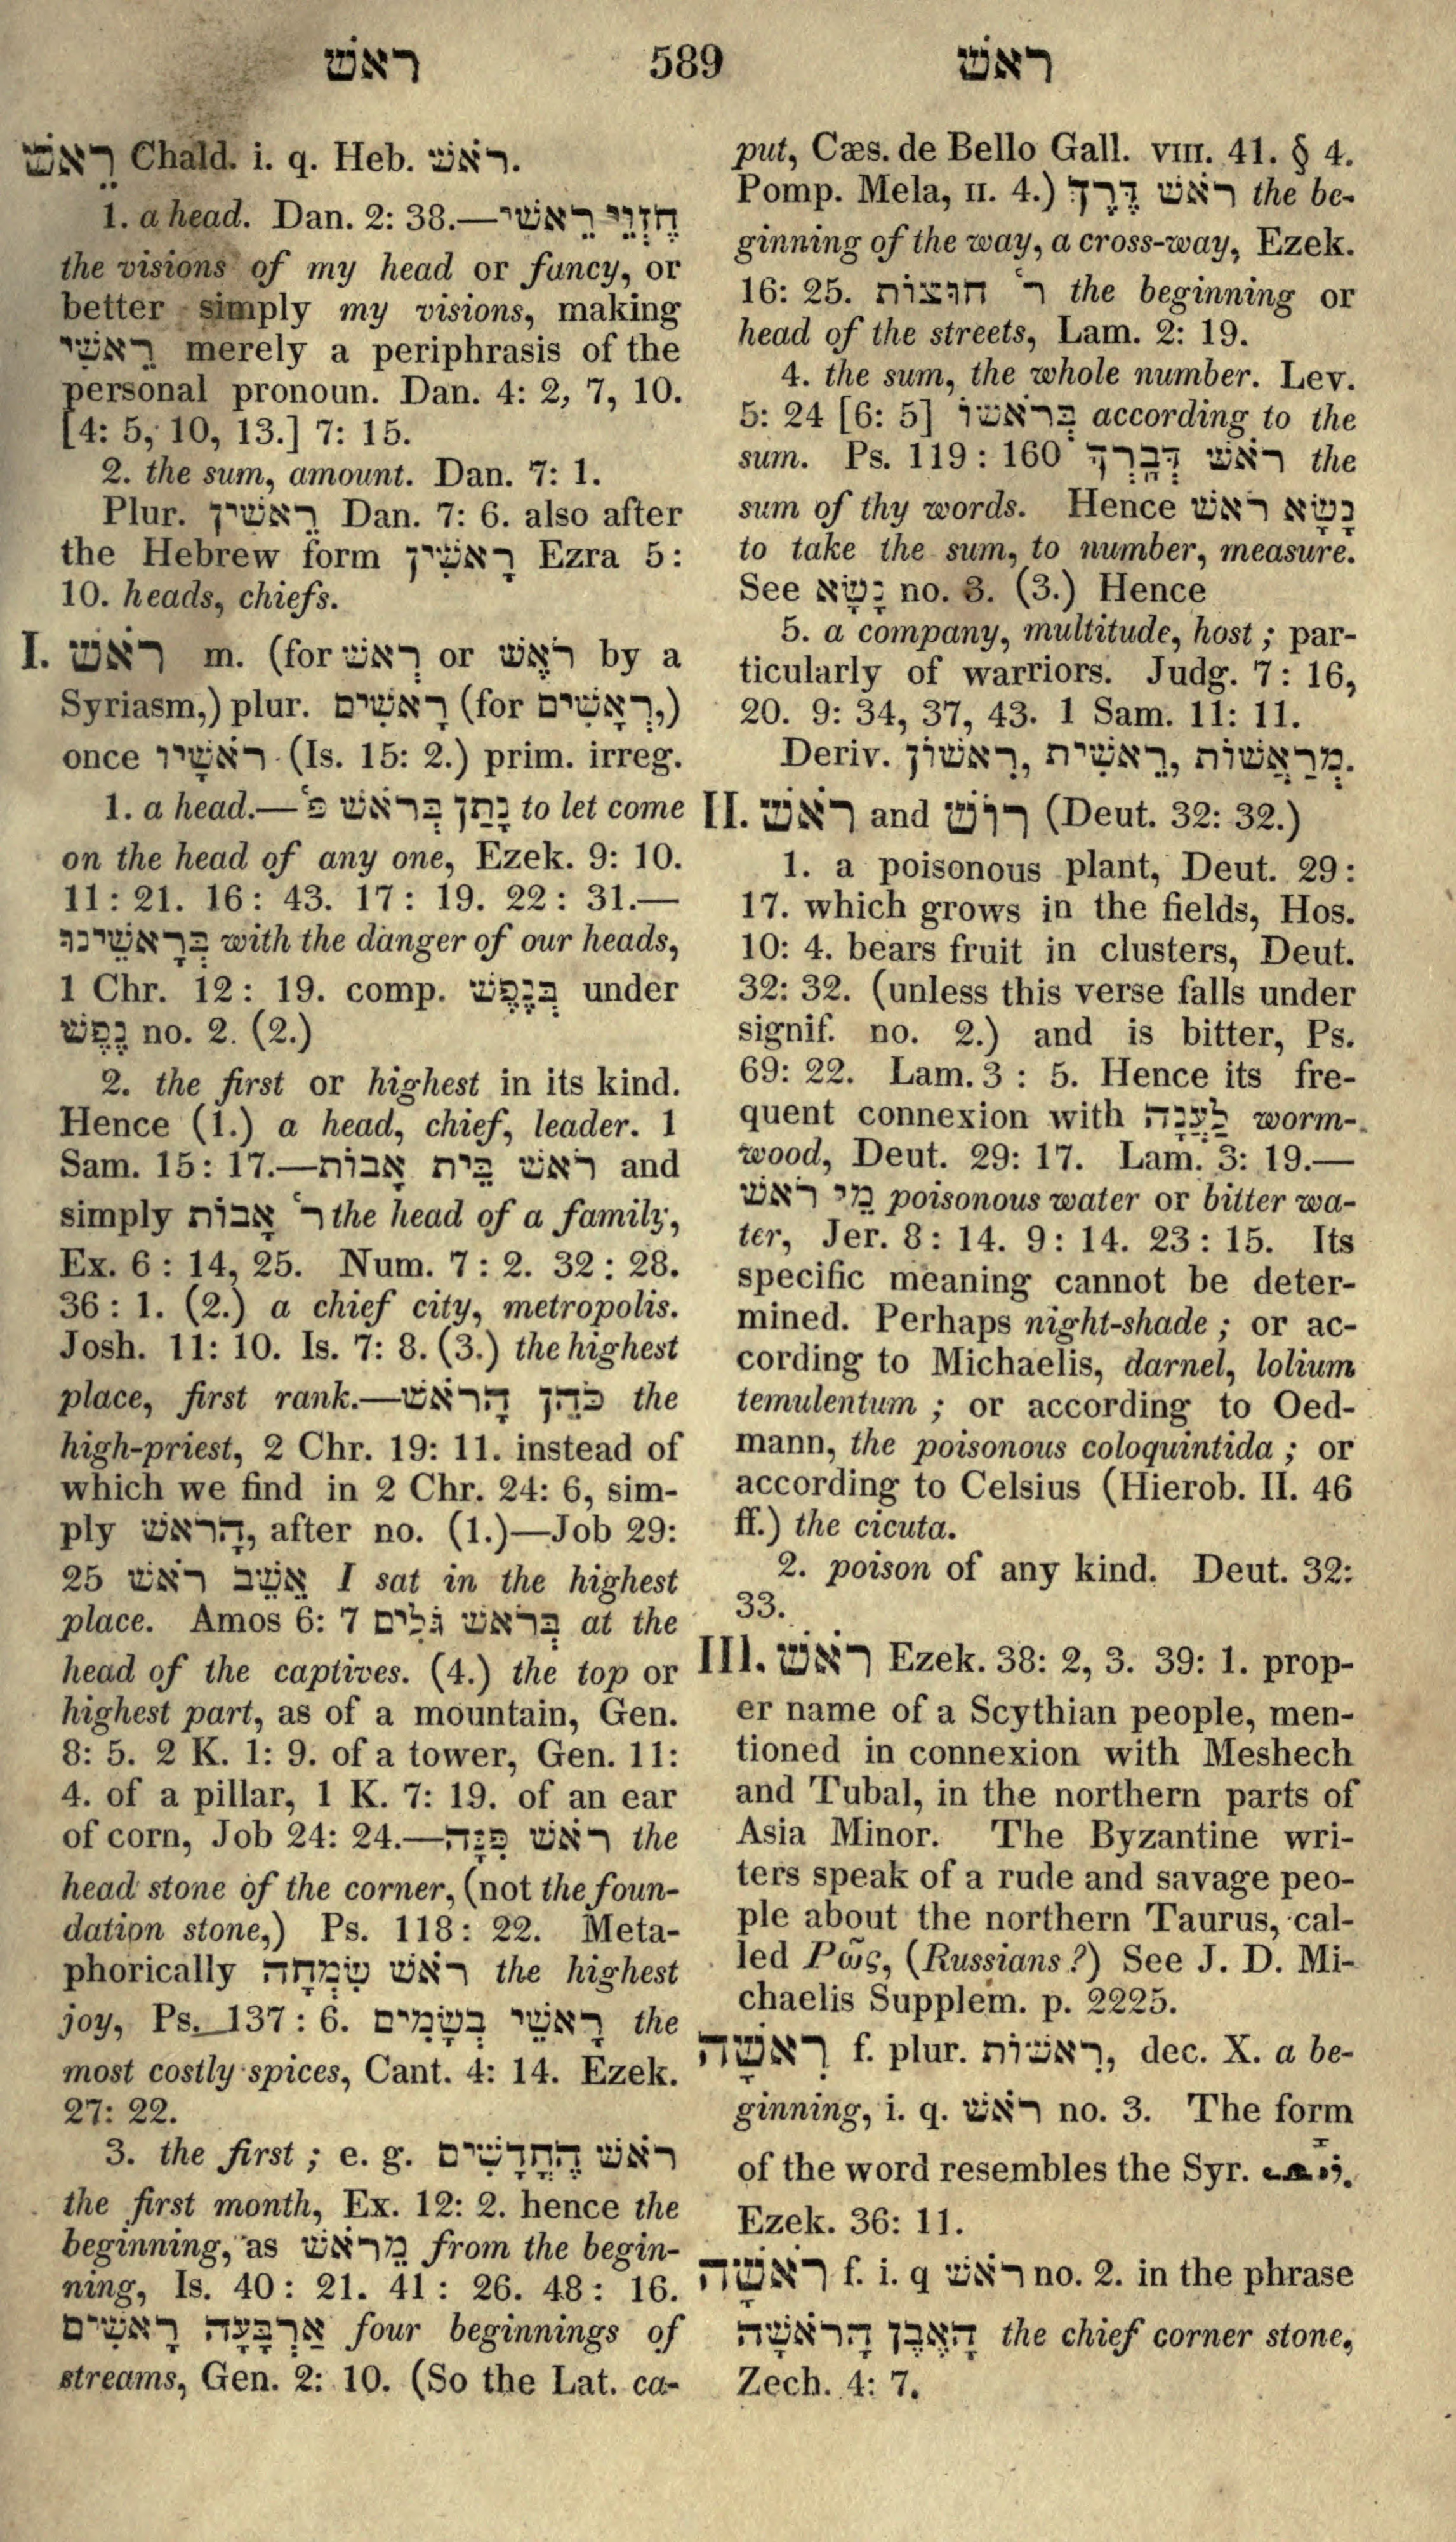 ראש 589 ראש
רֵאשׁ Chald. i. q. Heb. רֹאשׁ.
1. a head. Dan. 2: 38.—חֶזְוֵי רֵאשִׁי
the visions of my head or fancy, or
better simply my visions, making
רֵאשִׁי merely a periphrasis of the
personal pronoun. Dan. 4: 2, 7, 10.
[4: 5, 10, 13.] 7: 15.
2. the sum, amount. Dan. 7: 1.
Plur. רֵאשִׁין Dan. 7: 6. also after
the Hebrew form רָאשִׁין Ezra 5:
10. heads, chiefs.
I. רֹאשׁ m. (for רְאשׁ or רֹאֶשׁ by a
Syriasm,) plur. רָאשִׁים (for רְאָשִׁים,)
once רֹאשָׁיו (Is. 15: 2.) prim. irreg.
1. a head.—נָתַן בְּרֹאשׁ פ׳ to let come
on the head of any one, Ezek. 9: 10.
11: 21. 16: 43. 17: 19. 22: 31.—
בְּרָאשֵׁינוּ with the danger of our heads,
1 Chr. 12: 19. comp. בְּנֶפֶשׁ under
נֶפֶשׁ no. 2. (2.)
2. the first or highest in its kind.
Hence (1.) a head, chief, leader. 1
Sam. 15: 17.—רֹאשׁ בֵּית אָבוֹת and
simply ר׳ אָבוֹת the head of a family,
Ex. 6: 14, 25. Num. 7: 2. 32: 28.
36: 1. (2.) a chief city, metropolis.
Josh. 11: 10. Is. 7: 8. (3.) the highest
place, first rank.—כֹּהֵן הָרֹאשׁ the
high-priest, 2 Chr. 19: 11. instead of
which we find in 2 Chr. 24: 6, sim-
ply הָרֹאשׁ, after no. (1.)—Job 29:
25 אֵשֵׁב רֹאשׁ I sat in the highest
place. Amos 6: 7 בְּרֹאשׁ גֹּלִים at the
head of the captives. (4.) the top or
highest part, as of a mountain, Gen.
8: 5. 2 K. 1: 9. of a tower, Gen. 11:
4. of a pillar, 1 K. 7: 19. of an ear
of corn, Job 24: 24.—רֹאשׁ פִּנָּה the
head stone of the corner, (not the foun-
dation stone,) Ps. 118: 22. Meta-
phorically רֹאשׁ שִׂמְחָה the highest
joy, Ps. 137: 6. רָאשֵׁי בְשָׂמִים the
most costly spices, Cant. 4: 14. Ezek.
27: 22.
3. the first; e. g. רֹאשׁ הֶחֳדָשִׁים
the first month, Ex. 12: 2. hence the
beginning, as מֵרֹאשׁ from the begin-
ning, Is. 40: 21. 41: 26. 48: 16.
אַרְבָּעָה רָאשִׁים four beginnings of
streams, Gen. 2: 10. (So the Lat. ca-
put, Cæs. de Bello Gall. VIII. 41. § 4.
Pomp. Mela, II. 4.) רֹאשׁ דֶּרֶךְ the be-
ginning of the way, a cross-way, Ezek.
16: 25. ר׳ חוּצוֹת the beginning or
head of the streets, Lam. 2: 19.
4. the sum, the whole number. Lev.
5: 24 [6: 5] בְּרֹאשׁוֹ according to the
sum. Ps. 119: 160 רֹאשׁ דְּבָרְךָ the
sum of thy words. Hence נָשָׂא רֹאשׁ
to take the sum, to number, measure.
See נָשָׂא no. 3. (3.) Hence
5. a company, multitude, host; par-
ticularly of warriors. Judg. 7: 16,
20. 9: 34, 37, 43. 1 Sam. 11: 11.
Deriv. רִאשׁוֹן, רֵאשִׁית, מְרַאֲשׁוֹת.
II. רֹאשׁ and רוֹשׁ (Deut. 32: 32.)
1. a poisonous plant, Deut. 29:
17. which grows in the fields, Hos.
10: 4. bears fruit in clusters, Deut.
32: 32. (unless this verse falls under
signif. no. 2.) and is bitter, Ps.
69: 22. Lam. 3: 5. Hence its fre-
quent connexion with לַעֲנָה worm-
wood, Deut. 29: 17. Lam. 3: 19.—
מֵי רֹאשׁ poisonous water or bitter wa-
ter, Jer. 8: 14. 9: 14. 23: 15. Its
specific meaning cannot be deter-
mined. Perhaps night-shade; or ac-
cording to Michaelis, darnel, lolium
temulentum; or according to Oed-
mann, the poisonous coloquintida; or
according to Celsius (Hierob. II. 46
ff.) the cicuta.
2. poison of any kind. Deut. 32:
33.
III. רֹאשׁ Ezek. 38: 2, 3. 39: 1. prop-
er name of a Scythian people, men-
tioned in connexion with Meshech
and Tubal, in the northern parts of
Asia Minor. The Byzantine wri-
ters speak of a rude and savage peo-
ple about the northern Taurus, cal-
led Ρῶς, (Russians?) See J. D. Mi-
chaelis Supplem. p. 2225.
רִאשָׁה f. plur. רִאשׁוֹת, dec. X. a be-
ginning, i. q. רֹאשׁ no. 3. The form
of the word resembles the Syr.
Ezek. 36: 11.
רֹאשָׁה f. i. q רֹאשׁ no. 2. in the phrase
הָאֶבֶן הָרֹאשָׁה the chief corner stone,
Zech. 4: 7.